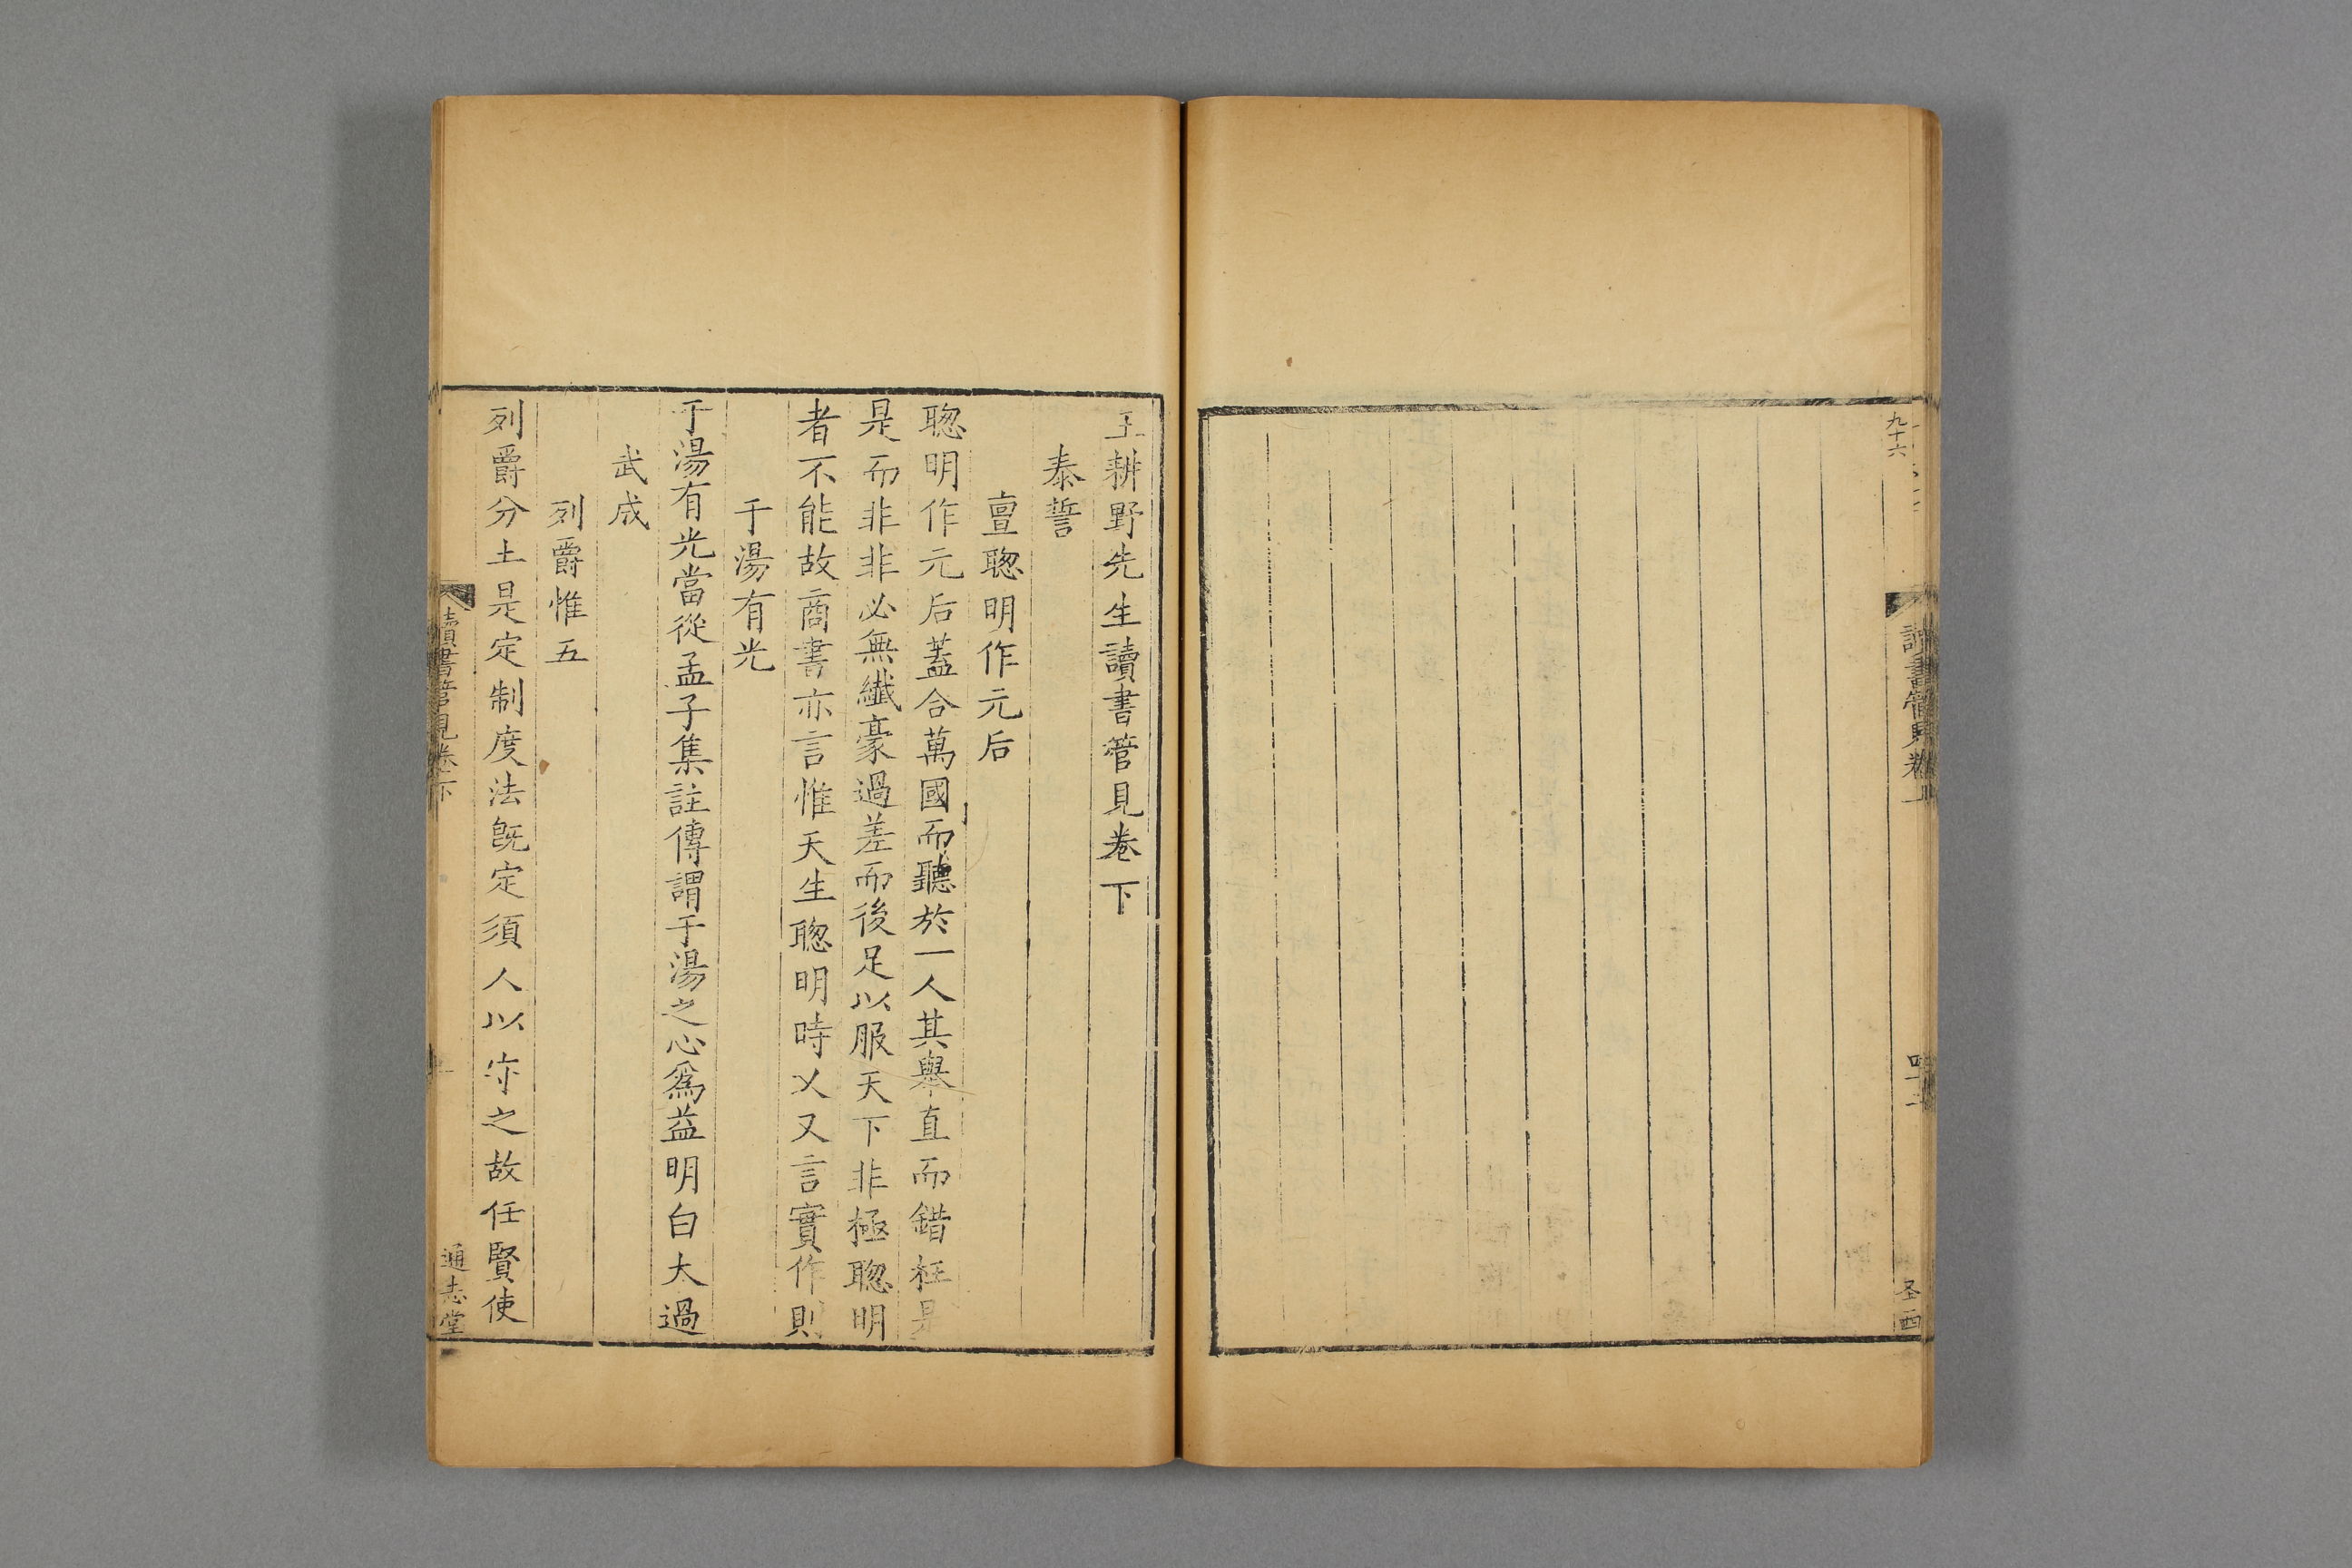 九十六
讀書管見卷上
王耕野先生讀書管見卷下
泰誓
亶聦明作元后
聦明作元后蓋合萬國而聽於一人其舉直而錯枉是
是而非非必無纖豪過差而後足以服天下非極聦明
者不能故商書亦言惟天生聦明時乂又言實作則
于湯有光
于湯有光當從孟子集註傳謂于湯之心爲益明白太過
武成
列爵惟五
列爵分土是定制度法旣定須人以守之故任賢使
讀書管見卷下
通志堂